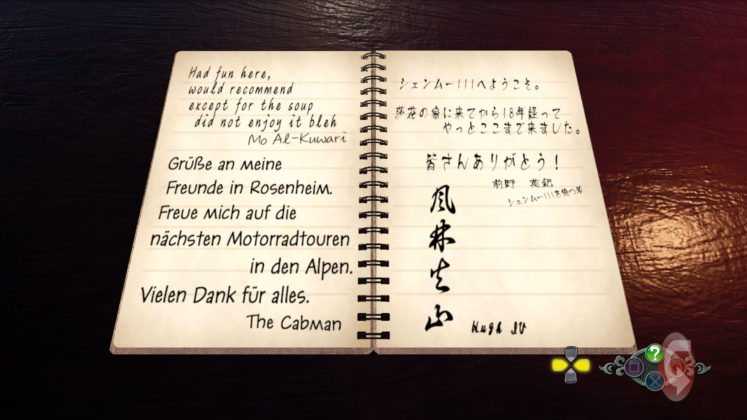 Had fun here,
would recommend
except for the soup
did not enjoy it bleh
Mo Al-Kuwari
Grüße an meine
Freunde in Rosenheim.
Freue mich auf die
nächsten Motorradtouren
in den Alpen.
Vielen Dank für alles.
The Cabman
シェンムーIIIへようこそ。
莎花の家に来てから18年経って
やっとここまで来ました。
皆さんありがとう！
シェンムーIII
風林火山
Hugh IV
?